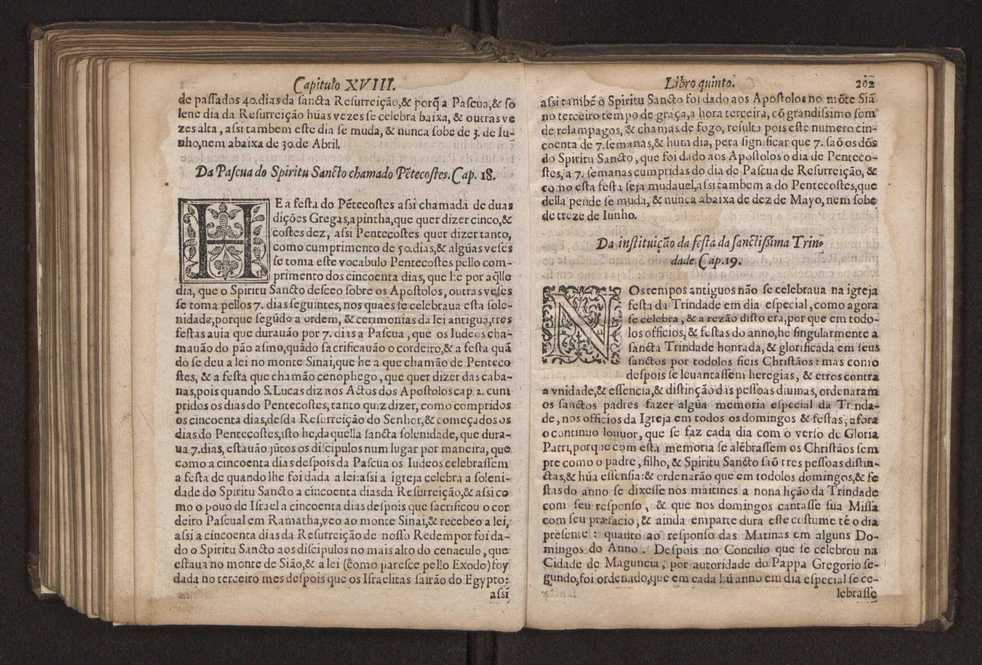 Capitulo XVIII.
de passados 40. dias da sancta Resurreição, & porq̃ a Pascua, & so
lene dia da Resurreição hũas vezes se celebra baixa, & outras ve
zes alta, assi tambem este dia se muda, & nunca sobe de 3. de Iu-
nho, nem abaixa de 30. de Abril.
Da Pascua do Spiritu Sancto chamado Pẽtecostes. Cap. 18.
HE a festa do Pẽtecostes assi chamada de duas
dições Gregas, apintha, que quer dizer cinco, &
costes dez, assi Pentecostes quer dizer tanto,
como cumprimento de 50. dias, & algũas veses
se toma este vocabulo Pentecostes pello com-
primento dos cincoenta dias, que he por aq̃lle
dia, que o Spiritu Sancto desceo sobre os Apostolos, outras veses
se toma pellos 7. dias seguintes, nos quaes se celebraua esta sole-
nidade, porque segũdo a ordem, & cerimonias da lei antigua, tres
festas auia que durauão por 7. dias a Pascua, que os Iudeos cha-
mauão do pão asmo, quãdo sacrificauão o cordeiro, & a festa quã
do se deu a lei no monte Sinai, que he a que chamão de Penteco-
stes, & a festa que chamão cenophego, que quer dizer das caba-
nas, pois quando S. Lucas diz nos Actos dos Apostolos cap 2. cum
pridos os dias do Pentecostes, tanto quiz dizer, como compridos
os cincoenta dias, desda Resurreição do Senhor, & começados os
dias do Pentecostes, isto he, daquella sancta solenidade, que dura-
ua 7. dias, estauão jũtos os discipulos num lugar por maneira, que
como a cincoenta dias despois da Pascua os Iudeos celebrassem
a festa de quando lhe foi dada a lei: assi a igreja celebra a soleni-
dade do Spiritu Sancto a cincoenta dias da Resurreição, & assi co
mo o pouo de Israel a cincoenta dias despois que sacrificou o cor
deiro Pascual em Ramatha, veo ao monte Sinai, & recebeo a lei,
assi a cincoenta dias da Resurreição de nosso Redemptor foi da-
do o Spiritu Sancto aos discipulos no mais alto do cenaculo, que
estaua no monte de Sião, & a lei (como paresce pello Exodo) foy
dada no terceiro mes despois que os Israelitas saírão do Egypto:
assi
Libro quinto.
202
assi tambẽ o Spiritu Sancto foi dado aos Apostolos no mõte Siã
no terceiro tempo de graça, a hora terceira, cõ grandissimo som
de relampagos, & chamas de fogo, resulta pois este numero cin-
coenta de 7. semanas, & hum dia, pera significar que 7. saõ os dõs
do Spiritu Sancto, que foi dado aos Apostolos o dia de Penteco-
stes, a 7. semanas cumpridas do dia de Pascua de Resurreição, &
como esta festa seja mudauel, assi tambem a do Pentecostes, que
della pende se muda, & nunca abaixa de dez de Mayo, nem sobe
de treze de Iunho.
Da instituição da festa da sanctissima Trin-
dade. Cap. 19.
NOs tempos antiguos não se celebraua na igreja
festa da Trindade em dia especial, como agora
se celebra, & a rezão disto era, por que em todo-
los officios, & festas do anno, he singularmente a
sancta Trindade honrada, & glorificada em seus
sanctos por todolos fieis Christãos: mas como
despois se leuantassem heregias, & erros contra
a vnidade, & essencia, & distinção das pessoas diuinas, ordenaram
os sanctos padres fazer algũa memoria especial da Trinda-
de, nos officios da Igreja em todos os domingos & festas, afora
o continuo louuor, que se faz cada dia com o verso de Gloria
Patri, porque com esta memoria se alẽbrassem os Christãos sem
pre como o padre, filho, & Spiritu Sancto saõ tres pessoas distin-
ctas, & hũa essensia: & ordenarão que em todolos domingos, & fe
stas do anno se dixesse nos maitines a nona lição da Trindade
com seu responso, & que nos domingos cantasse sua Missa
com seu præfacio, & ainda em parte dura este costume tẽ o dia
presente: quanto ao responso das Matinas em alguns Do-
mingos do Anno. Despois no Concilio que se celebrou na
Cidade de Maguncia, por autoridade do Pappa Gregorio se-
gundo, foi ordenado, que em cada hũ anno em dia especial se ce-
lebrasse